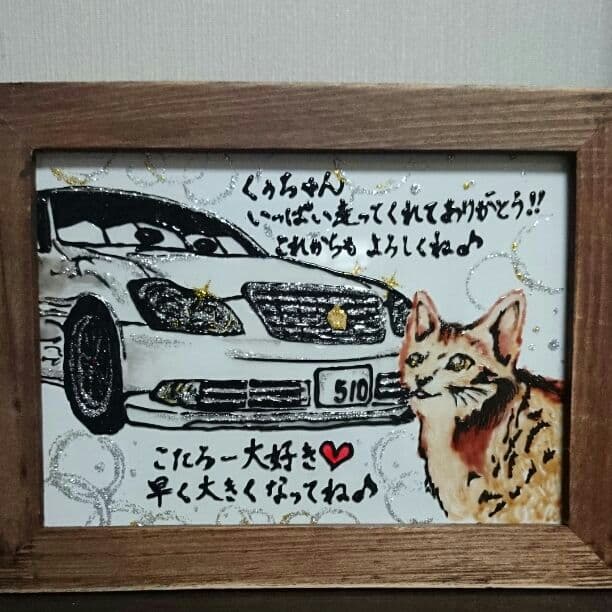 くぅちゃん
いっぱい走ってくれてありがとう!!
これからも よろしくね♪
510
こたろー大好き♥
早く大きくなってね♪